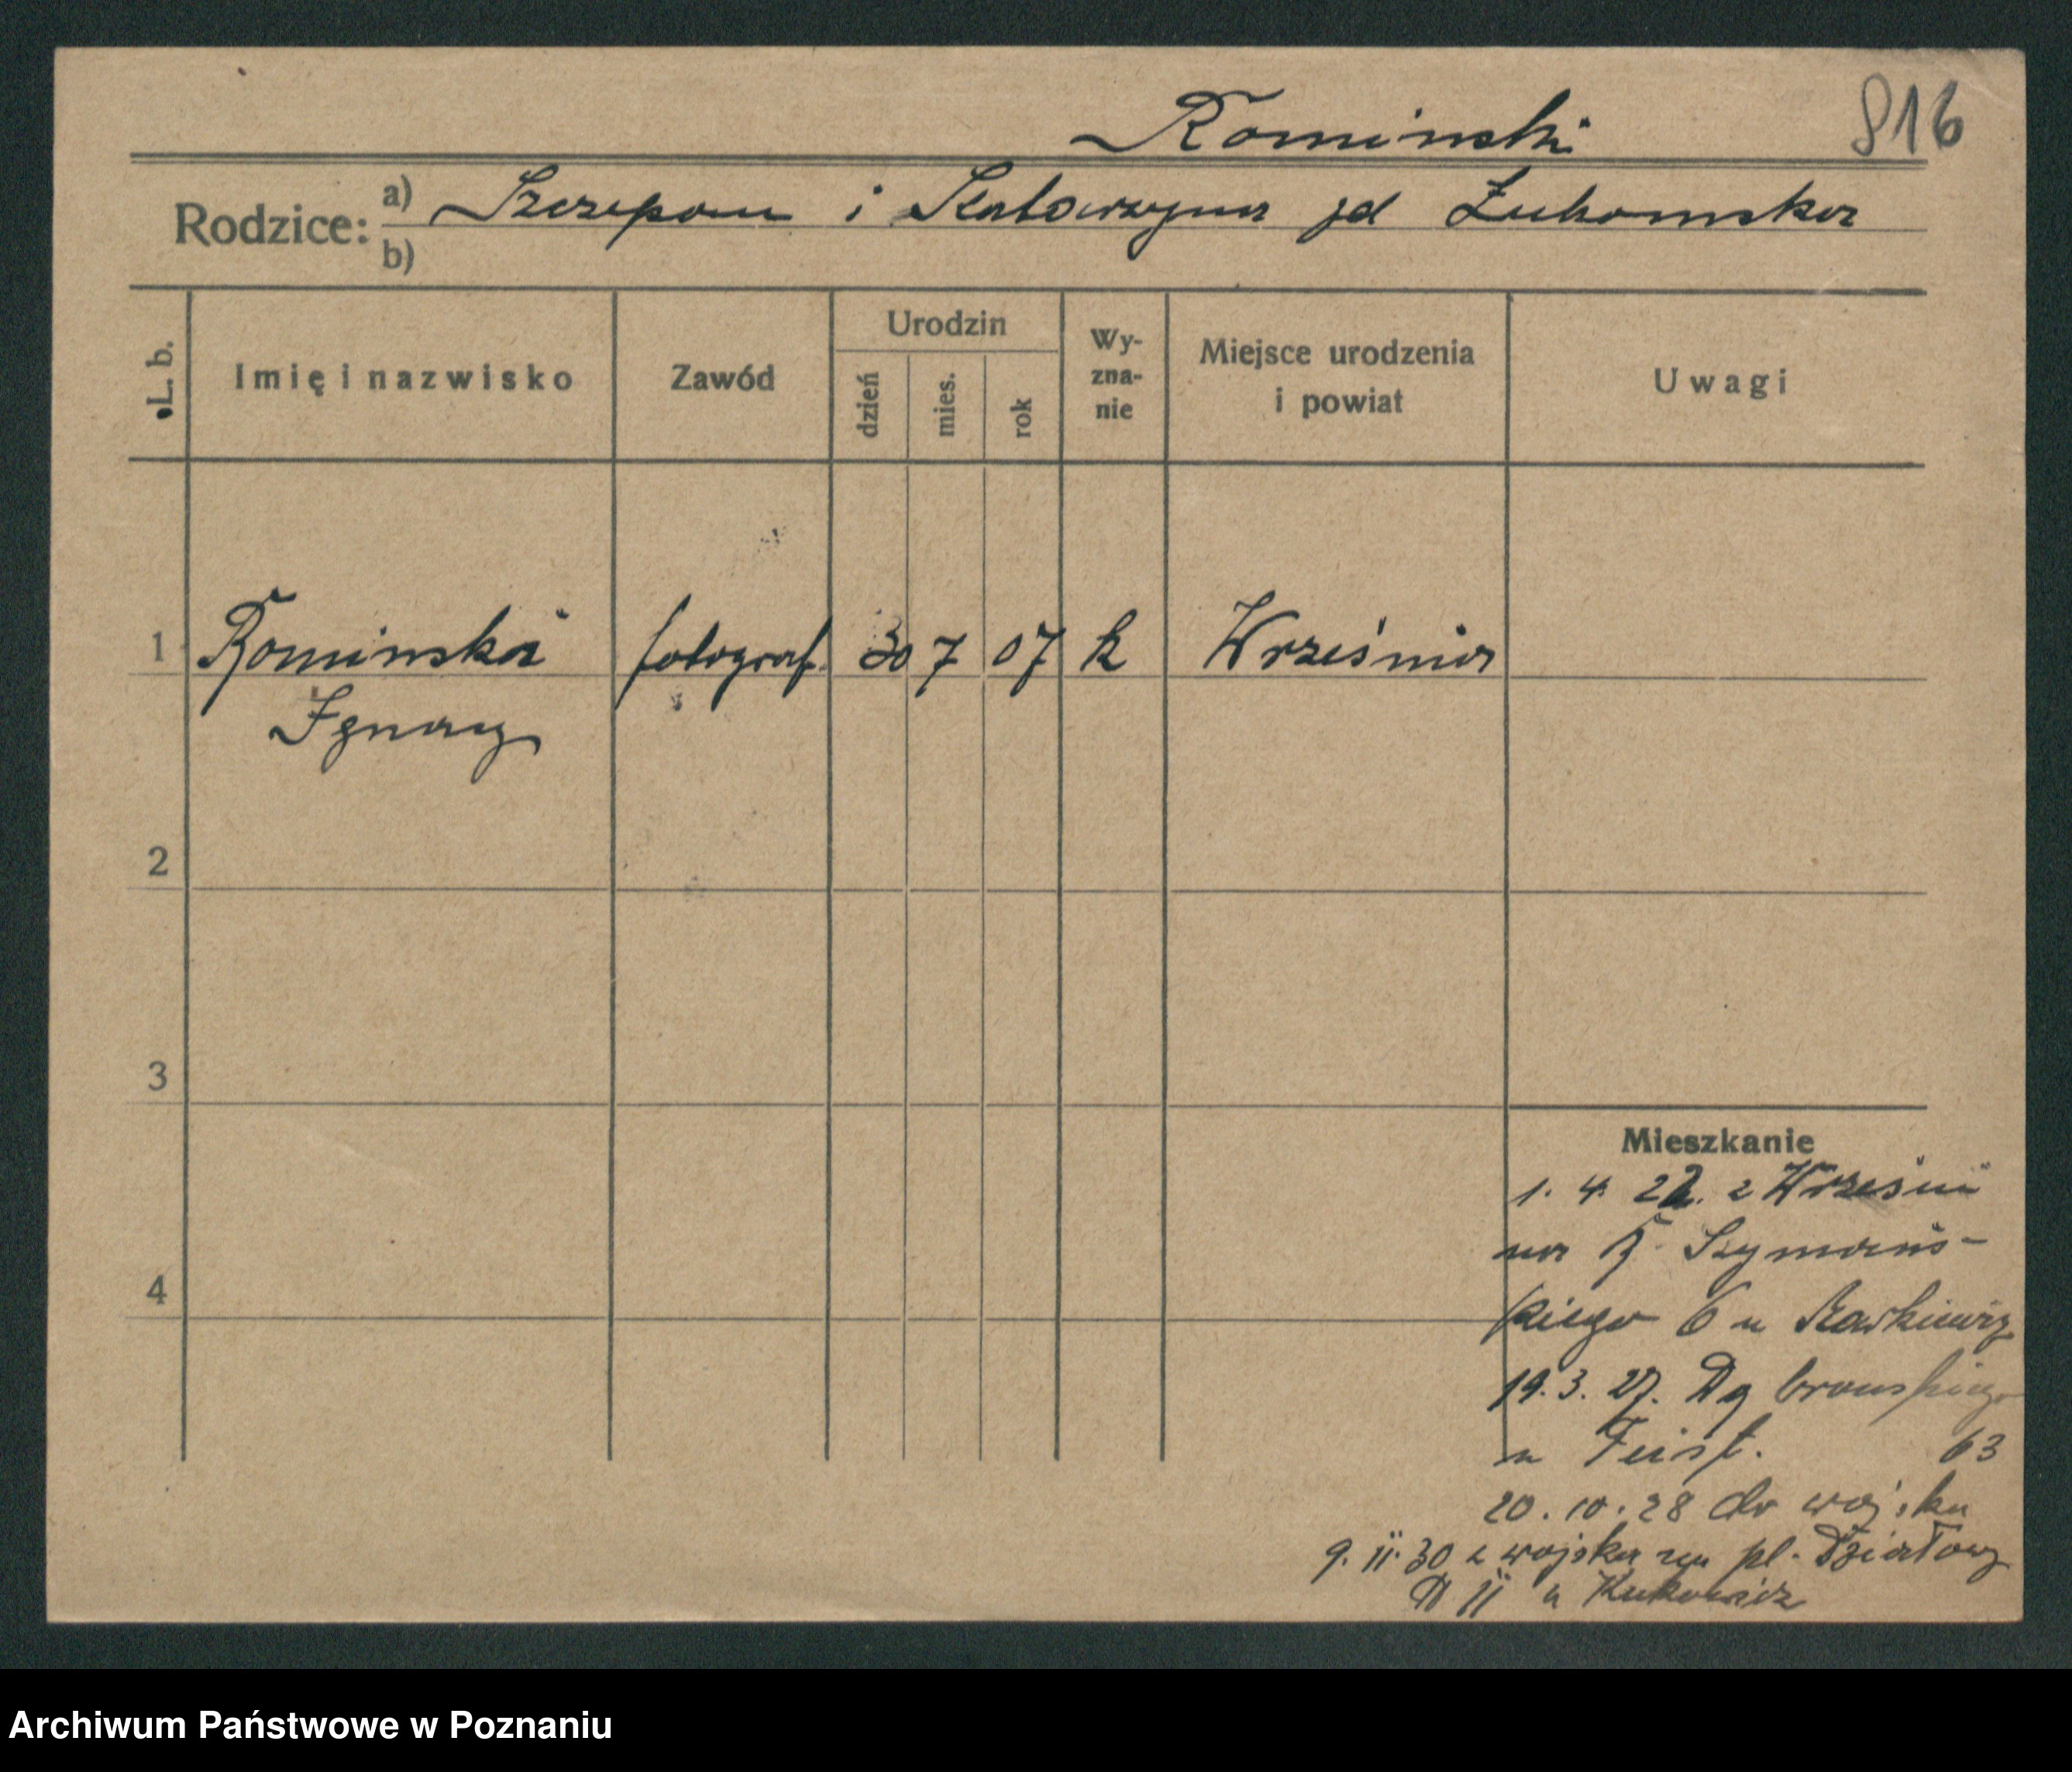 Rominski 816
Rodzice: a) Szczepan i Katarzyna jd Żukomska
b)
L. b. Imię i nazwisko Zawód Urodzin dzień mies. rok Wy-zna-nie Miejsce urodzenia i powiat Uwagi
1 Rominski fotograf 30 7 07 k Września
Ignacy
2
3
Mieszkanie
1. 4. 22. z Wrześni
na Szymańs-
4
kiego 6 u
19. 3. 27. Dąbrowskiego
u Feist. 63
20. 10. 28 do wojska
9. 11. 30 z wojska na pl. Działowy
11 u
Archiwum Państwowe w Poznaniu